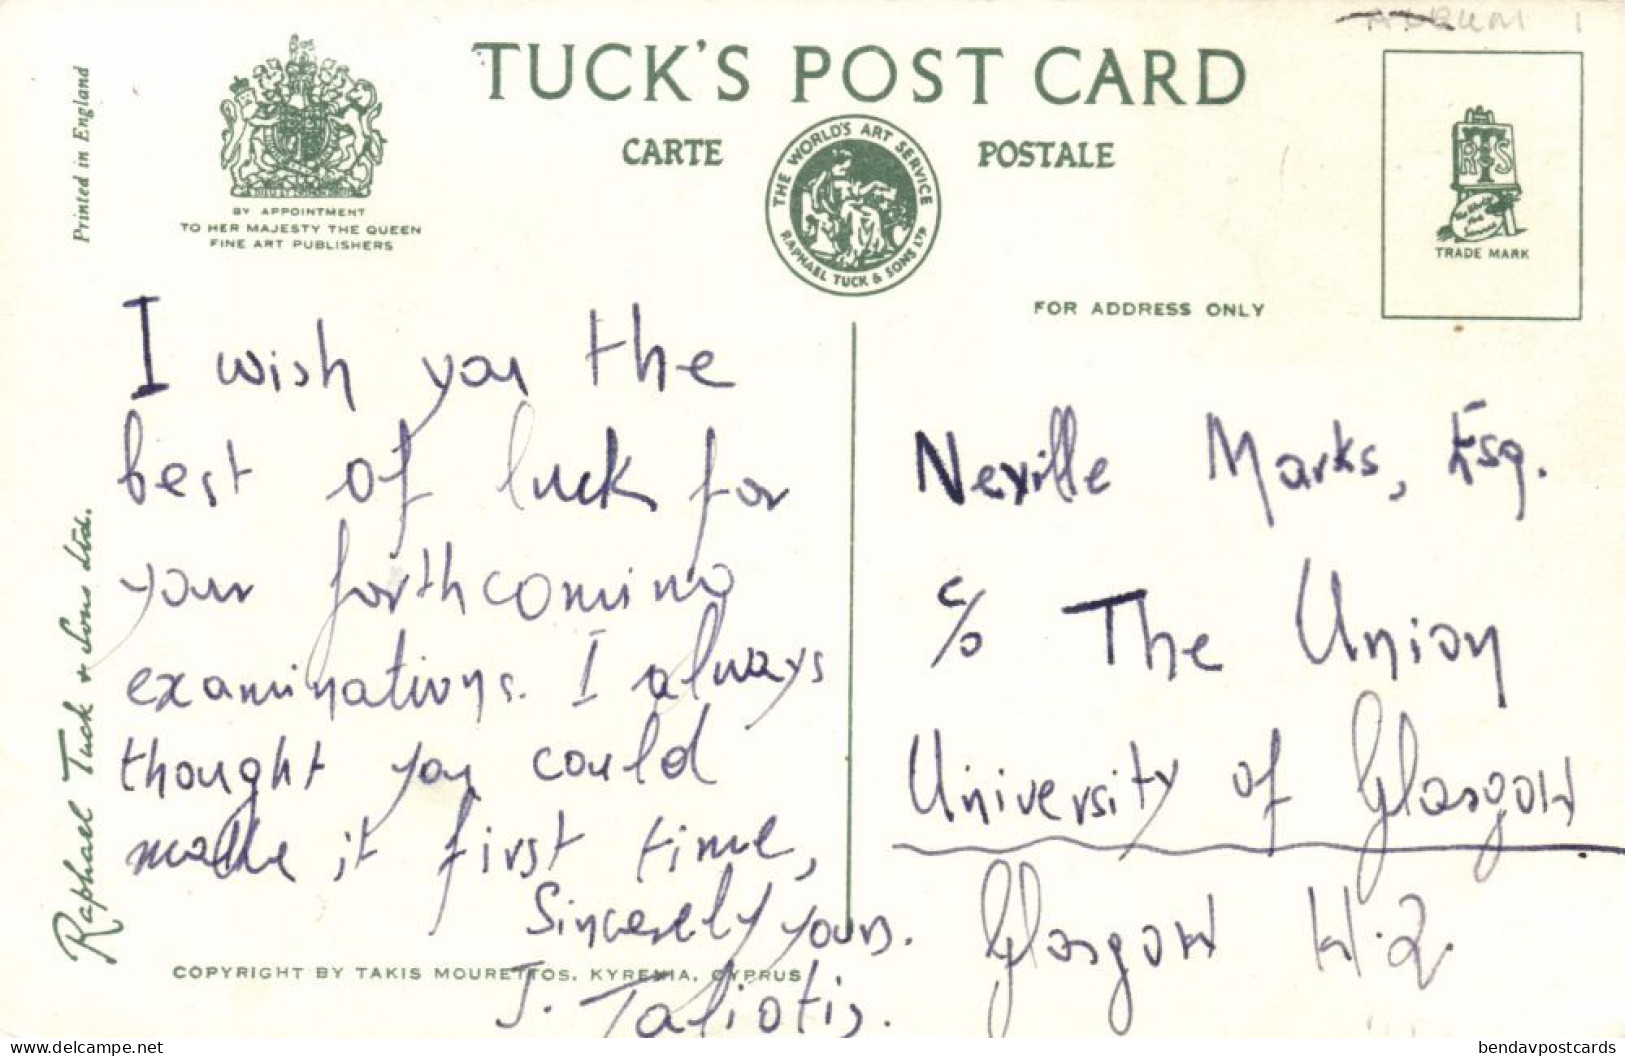 ALBUM 1
TUCK'S POST CARD
CARTE POSTALE
THE WORLD'S ART SERVICE
RAPHAEL TUCK & SONS LTD
Printed in England
BY APPOINTMENT
TO HER MAJESTY THE QUEEN
FINE ART PUBLISHERS
R T S
TRADE MARK
FOR ADDRESS ONLY
Raphael Tuck & Sons Ltd.
I wish you the
best of luck for
your forthcoming
examinations. I always
thought you could
make it first time,
Sincerely yours.
J. Taliotis.
Neville Marks, Esq.
c/o The Union
University of Glasgow
Glasgow W.2.
COPYRIGHT BY TAKIS MOURETTOS. KYRENIA, CYPRUS
www.delcampe.net
bendavpostcards